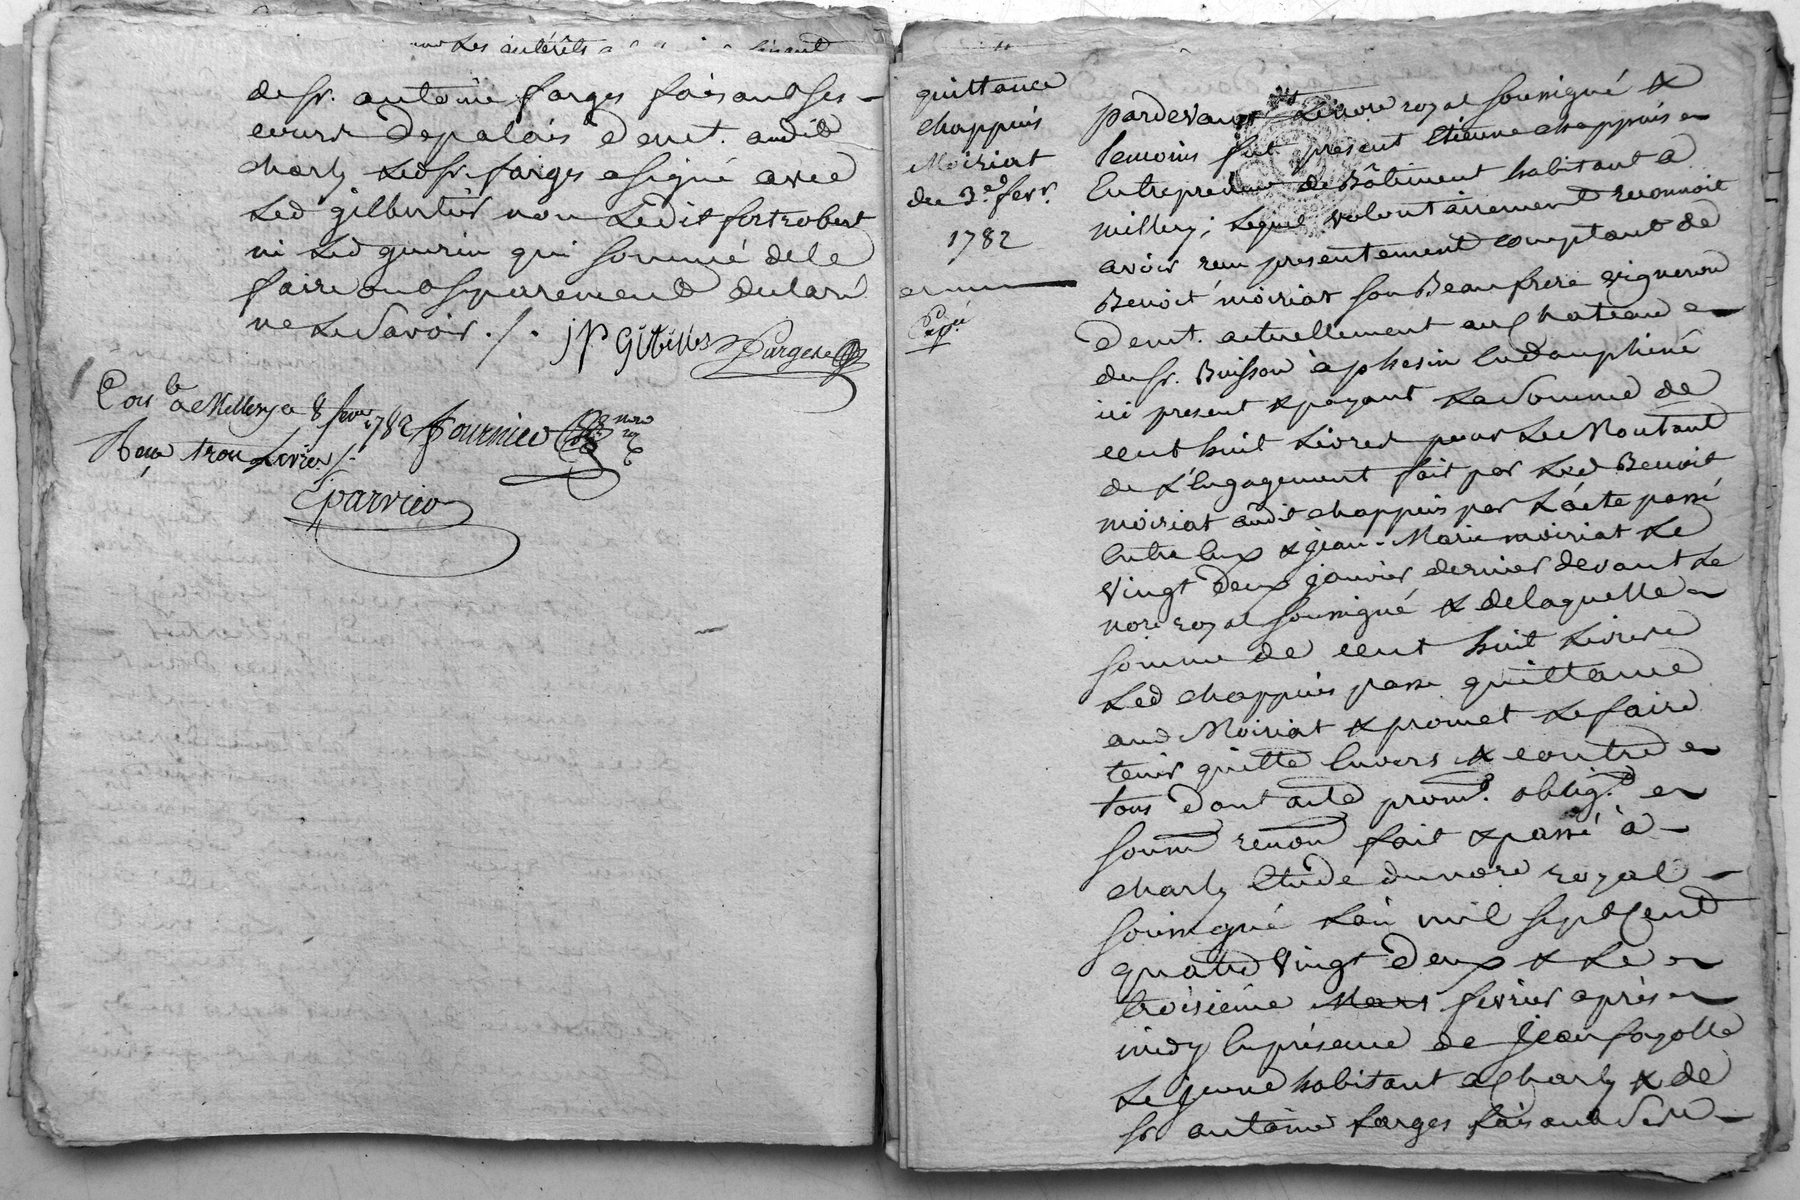 Les intérêts
de sr. antoine farges faisant ses
cours de palais demt. audit
charly led sr. farges a signé avec
led gilbertier non ledit fortrobert
ni led guerin qui sommé de le
faire ont separement declaré
ne le savoir ./.
Con.lé a Millery le 8 fevr 1782 fournier nore
Reçu trois Livres ./.
Eparvier
quittance
chappuis
Moiriat
du 3e. fevr.
1782
Expé
pardevant Le nore royal soussigné &
temoins fut présent etienne chappuis
Entrepreneur de Bâtiment habitant a
millery; lequel volontairement reconnoit
avoir reçu presentement comptant de
Benoit moiriat son Beaufrere vigneron
demt. actuellement au chateau
du sr. Buisson à phesin En dauphiné
ici present & payant La Somme de
cent huit Livres pour Le Montant
de L'Engagement fait par Led Benoit
moiriat audit chappuis par L'acte passé
Entre Eux & jean-Marie moiriat Le
vingt deux janvier dernier devant Le
nore royal soussigné & de laquelle
somme de cent huit Livres
Led chappuis passe quittance
aud Moiriat & promet Le faire
tenir quitte Envers & contre
tous dont acte promt. oblig.
soum renon fait & passé à
charly Etude du nore royal
soussigné L'an mil sept cent
quatre vingt deux & Le
troisième Mars fevrier après
midy En présence de jean fayolle
Le jeune habitant a charly & de
sr antoine farges faisant Ses